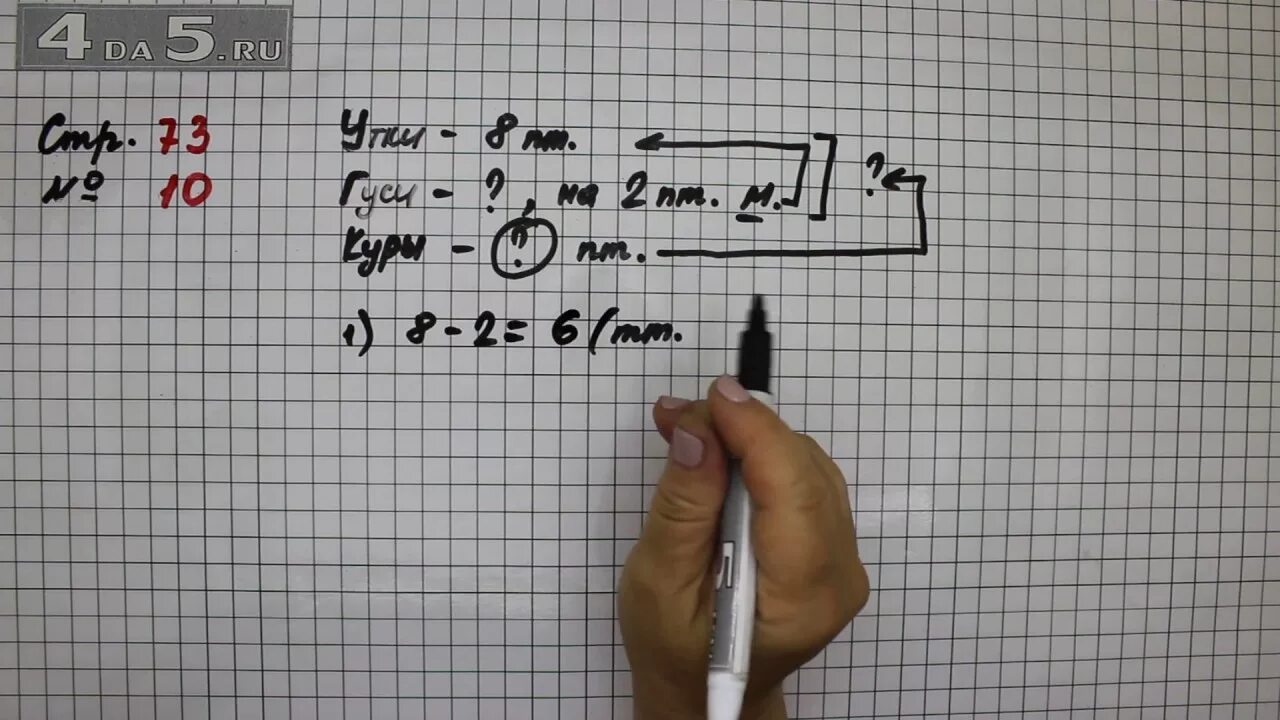 4DA5.RU
Стр. 73
№ 10
Утки - 8 пт.
Гуси - ?, на 2 пт. м. ] ?
Куры - ? пт.
1) 8 - 2 = 6 (пт.